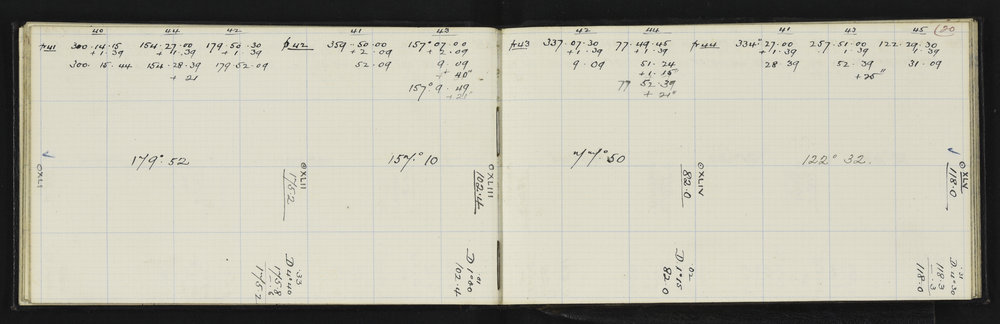 40 44 42 41 43
p41 300.14.15 154.27.00 179.50.30 p42 359.50.00 157°07.00
+1.39 +1.39 +1.39 +2.09 +2.09
300. 15.44 154.28.39 179.52.09 52.09 9.09
+21 +40"
157°.9.49
+21"
179°.52 157°10
⊙XLI
⊙XLII
175.2
⊙XLIII
102.4
.33
D 4°40
175.8
- .6
175.2
.01
D 1°00
102.4
42 44 41 43 45 (20
p43 337.07.30 77.49.45 p44 334°27.00 257.51.00 122.29.30
+1.39 +1.39 +1.39 1.39 1.39
9.09 51.24 28.39 52.39 31.09
+1.15" +25"
77 52.39
+21"
77°.50 122° 32.
⊙XLIV
82.0
⊙XLV
118.0
.02
D 1°15
82.0
.31
D 4°30
118.3
- .3
118.0